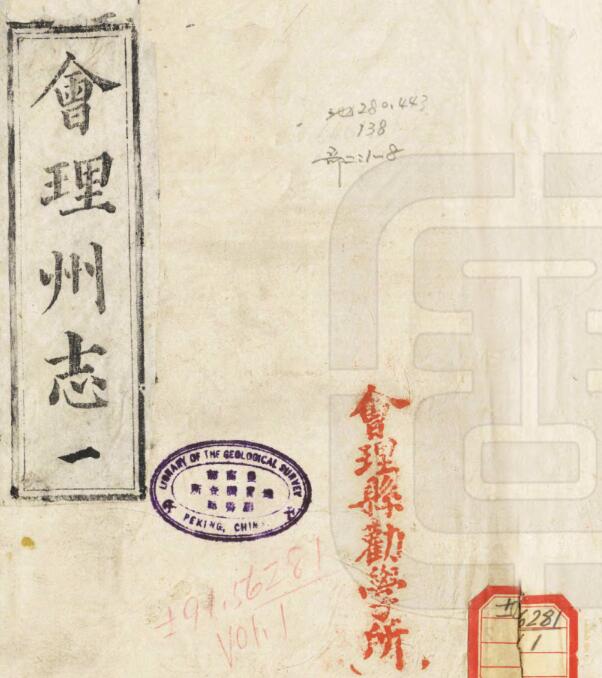 會理州志一
地280.443
138
LIBRARY OF THE GEOLOGICAL SURVEY
PEKING, CHINA
會理縣勸學所
191.56281
Vol.1
6281
1